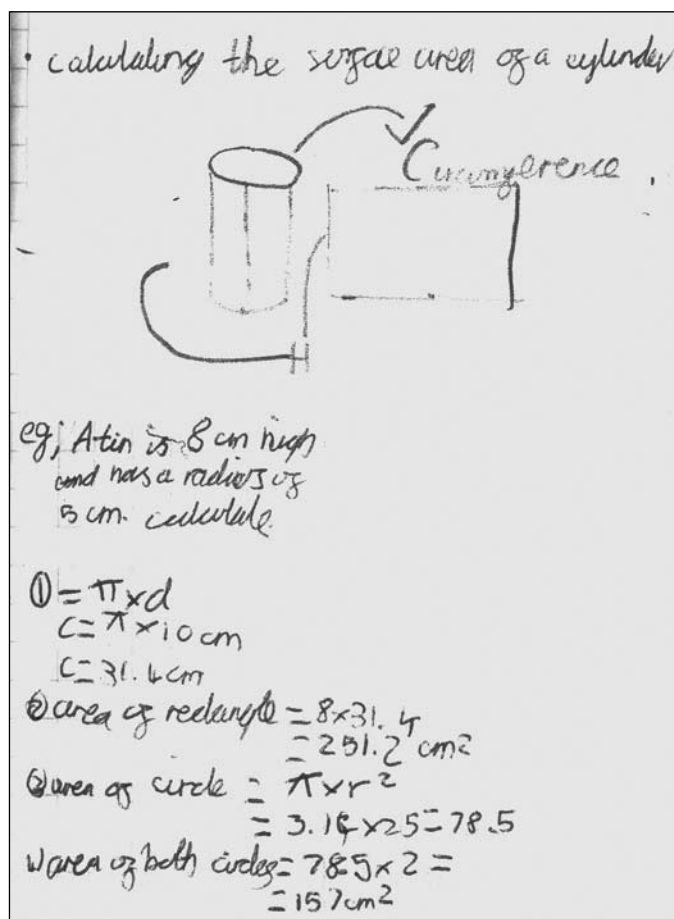 • calculating the surface area of a cylinder
Circumference.
H
eg; A tin is 8 cm high
and has a radius of
5 cm. calculate.
① = π × d
C = π × 10 cm
C = 31.4 cm
② area of rectangle = 8 × 31.4
= 251.2 cm2
③ area of circle = π × r2
= 3.14 × 25 = 78.5
4) area of both circles = 78.5 × 2 =
= 157 cm2